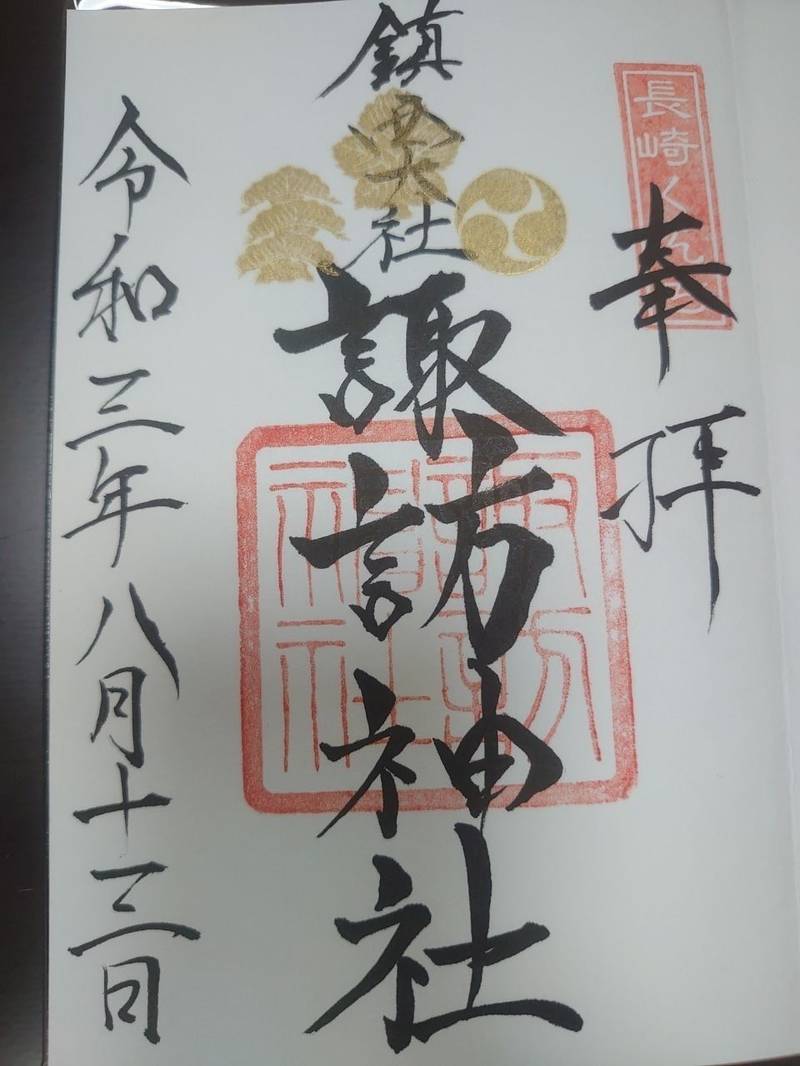 長崎くんち
奉拝
鎮西大社
諏訪神社
諏訪神社
令和三年八月十三日